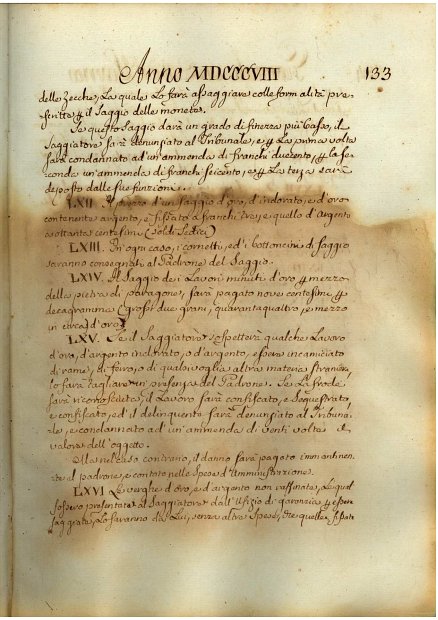 Anno MDCCCVIII 133
delle Zecche, La quale Lo farà assaggiare colle formalità pre-
scritte p il Saggio delle monete.
Se questo Saggio darà un grado di finezza più basso, il
Saggiatore sarà denunziato al Tribunale, e p La prima volta
sarà condannato ad un'ammenda di franchi duecento, p la se-
conda un'ammenda di franchi seicento, e p La terza sarà
deposto dalle sue funzioni.
LXII. Il prezzo d'un saggio d'oro, d'indorato, e d'oro
contenente argento, è fissato a franchi tre; e quello d'Argento
a ottanta centesimi (Soldi Sedici)
LXIII. In ogni caso, i cornetti, ed i bottoncini di saggio
saranno consegnati al Padrone del Saggio.
LXIV. Il Saggio dei Lavori minuti d'oro p mezzo
della pietra di paragone, sarà pagato nove centesimi p
decagramma (grossi due grani, quarantaquattro, e mezzo
in circa) d'oro
LXV. Se il Saggiatore sospetterà qualche Lavoro
d'oro, d'argento indorato, o d'argento, essere incamiciato
di rame, di ferro, o di qualsivoglia altra materia straniera,
lo farà tagliare in presenza del Padrone. Se La frode
sarà riconosciuta, il Lavoro sarà confiscato, e Sequestrato,
e confiscato, ed il delinquente sarà denunziato al Tribuna-
le, e condannato ad un'ammenda di venti volte il
valore dell'oggetto.
Ma nel caso contrario, il danno sarà pagato immantinen-
te al padrone, e contato nelle Spese d'Amministrazione.
LXVI Le verghe d'oro, e d'argento non raffinate, Le quali
fossero presentate al Saggiatore dall'Ufizio di garanzia p essere
saggiate, Lo saranno da Lui, senza altre Spese, che quelle